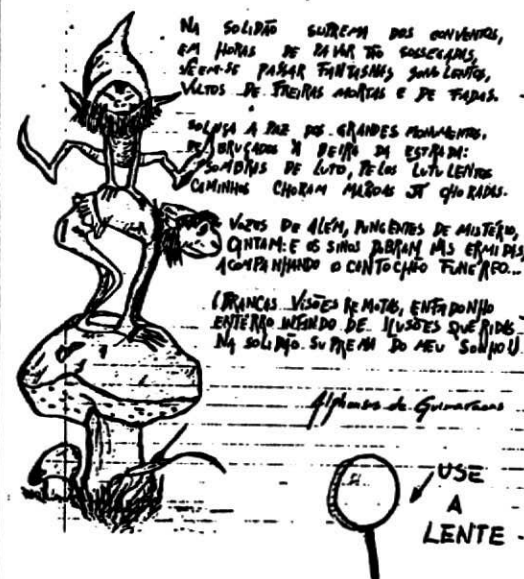 NA SOLIDÃO SUPREMA DOS CONVENTOS,
EM HORAS DE PAVOR TÃO SOSSEGADAS,
VÊEM-SE PASSAR FANTASMAS SONOLENTOS,
VULTOS DE FREIRAS MORTAS E DE FADAS.
SOLUÇA A PAZ DOS GRANDES MONUMENTOS,
DEBRUÇADOS À BEIRA DA ESTRADA:
SOMBRAS DE LUTO, PELOS LUTULENTOS
CAMINHOS CHORAM MÁGOAS JÁ CHORADAS.
VOZES DE ALÉM, PUNGENTES DE MISTÉRIO,
CANTAM: E OS SINOS DOBRAM NAS ERMIDAS,
ACOMPANHANDO O CONTOCHÃO FUNÉREO...
(BRANCAS VISÕES REMOTAS, ENFADONHO
ENTERRO INFINDO DE ILUSÕES QUERIDAS
NA SOLIDÃO SUPREMA DO MEU SONHO!)
Alphonsus de Guimaraens
USE
A
LENTE